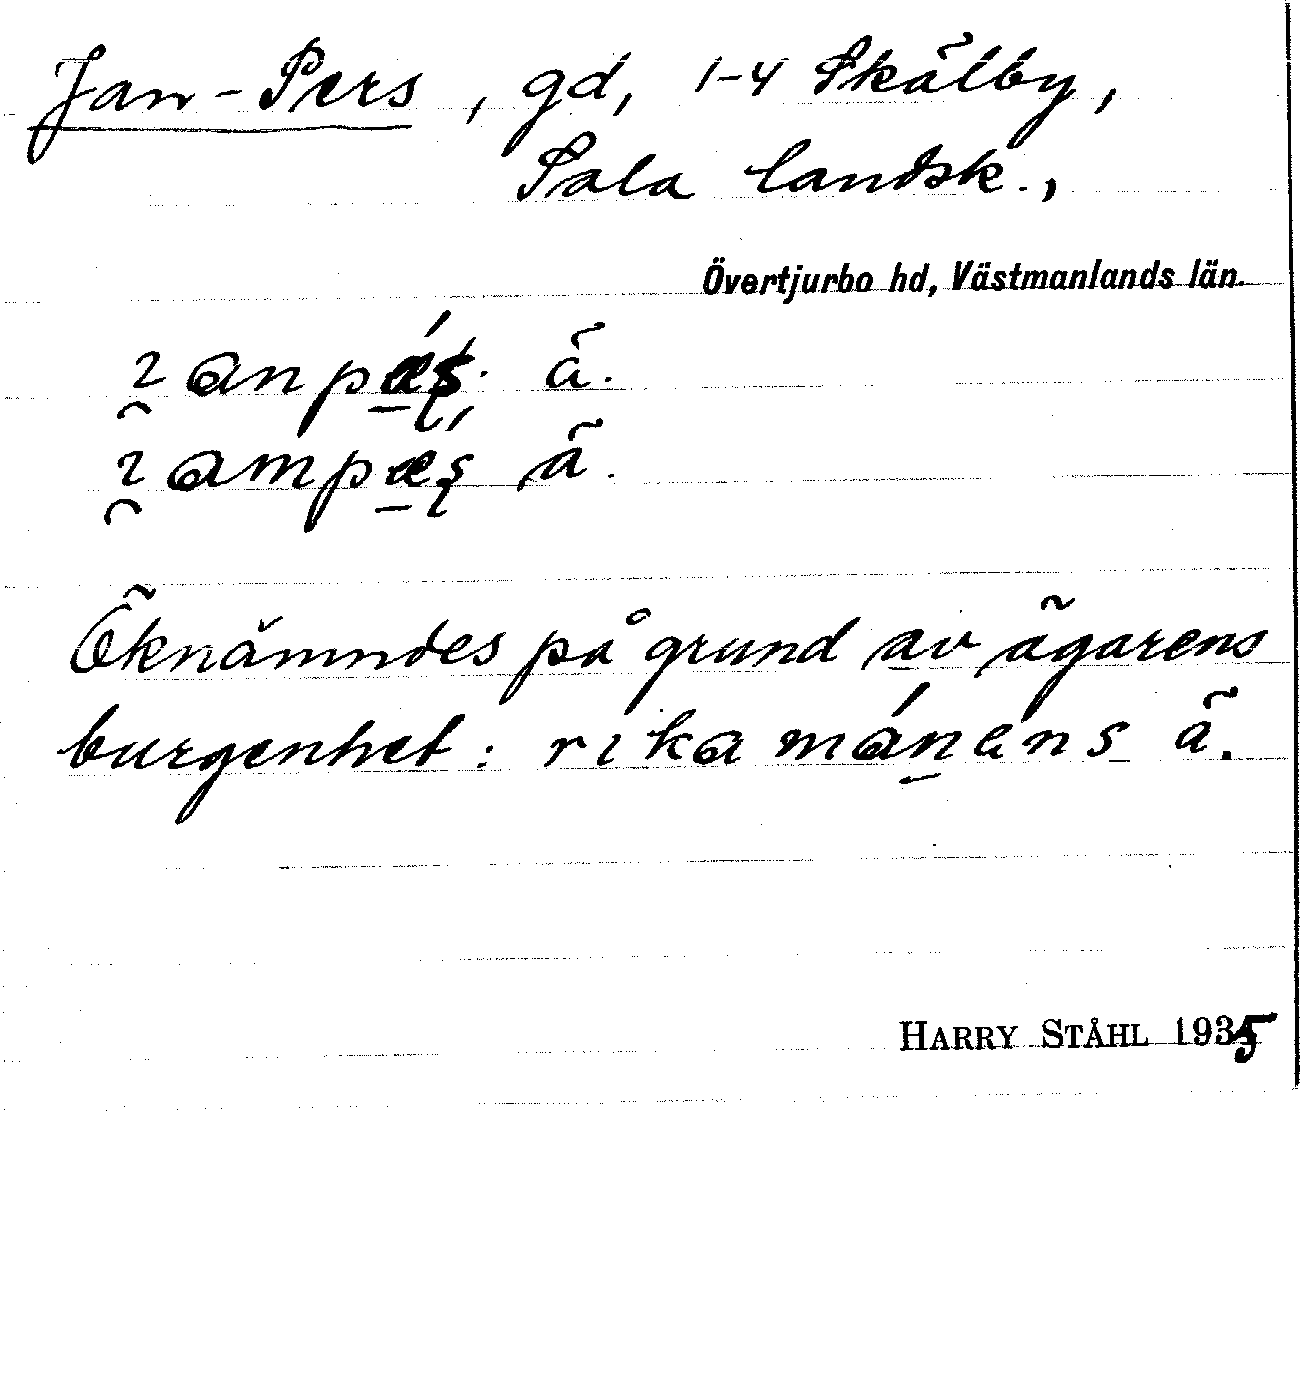 Jan-Pers, gd, 1-4 Skälby,
Sala landsk.,
Övertjurbo hd, Västmanlands län.
ɿ̯anpǽʂ. ä.
ɿ̯ampæʂ ä.
Öknämndes på grund av ägarens
burgenhet: rika mánens ä.
HARRY STÅHL 1935